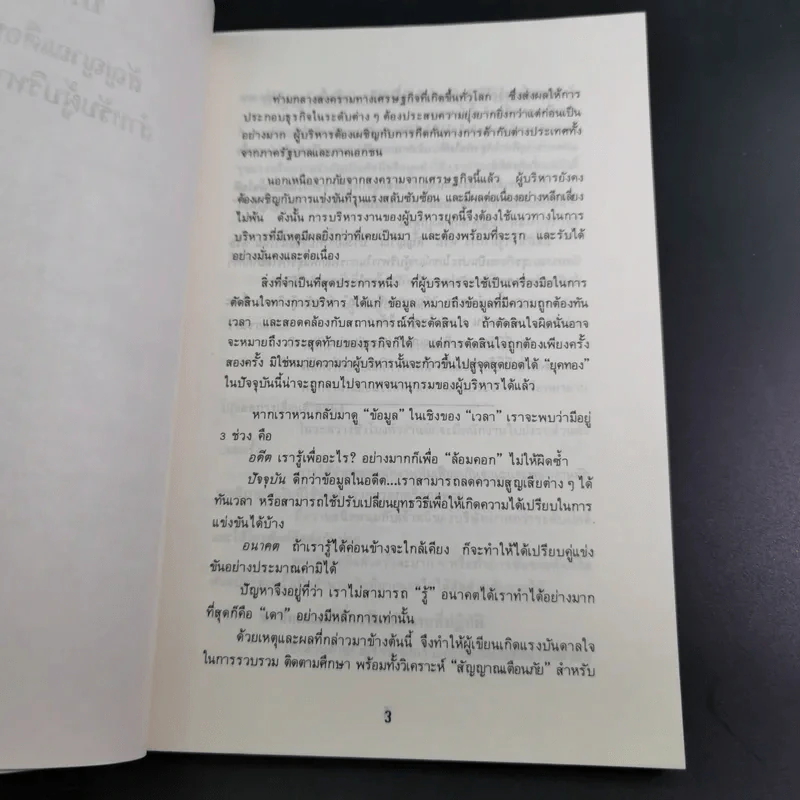 สัญญาณเตือน
สำหรับผู้บริหา
ท่ามกลางสงครามทางเศรษฐกิจที่เกิดขึ้นทั่วโลก ซึ่งส่งผลให้การ
ประกอบธุรกิจในระดับต่าง ๆ ต้องประสบความยุ่งยากยิ่งกว่าแต่ก่อนเป็น
อย่างมาก ผู้บริหารต้องเผชิญกับการกีดกันทางการค้ากับต่างประเทศทั้ง
จากภาครัฐบาลและภาคเอกชน
นอกเหนือจากภัยจากสงครามจากเศรษฐกิจนี้แล้ว ผู้บริหารยังคง
ต้องเผชิญกับการแข่งขันที่รุนแรงสลับซับซ้อน และมีผลต่อเนื่องอย่างหลีกเลี่ยง
ไม่พ้น ดังนั้น การบริหารงานของผู้บริหารยุคนี้จึงต้องใช้แนวทางในการ
บริหารที่มีเหตุมีผลยิ่งกว่าที่เคยเป็นมา และต้องพร้อมที่จะรุก และรับได้
อย่างมั่นคงและต่อเนื่อง
สิ่งที่จำเป็นที่สุดประการหนึ่ง ที่ผู้บริหารจะใช้เป็นเครื่องมือในการ
ตัดสินใจทางการบริหาร ได้แก่ ข้อมูล หมายถึงข้อมูลที่มีความถูกต้องทัน
เวลา และสอดคล้องกับสถานการณ์ที่จะตัดสินใจ ถ้าตัดสินใจผิดนั่นอาจ
จะหมายถึงวาระสุดท้ายของธุรกิจก็ได้ แต่การตัดสินใจถูกต้องเพียงครั้ง
สองครั้ง มิใช่หมายความว่าผู้บริหารนั้นจะก้าวขึ้นไปสู่จุดสุดยอดได้ “ยุคทอง”
ในปัจจุบันนี้น่าจะถูกลบไปจากพจนานุกรมของผู้บริหารได้แล้ว
หากเราหวนกลับมาดู “ข้อมูล” ในเชิงของ “เวลา” เราจะพบว่ามีอยู่
3 ช่วง คือ
อดีต เรารู้เพื่ออะไร? อย่างมากก็เพื่อ “ล้อมคอก” ไม่ให้ผิดซ้ำ
ปัจจุบัน ดีกว่าข้อมูลในอดีต...เราสามารถลดความสูญเสียต่าง ๆ ได้
ทันเวลา หรือสามารถใช้ปรับเปลี่ยนยุทธวิธีเพื่อให้เกิดความได้เปรียบในการ
แข่งขันได้บ้าง
อนาคต ถ้าเรารู้ได้ค่อนข้างจะใกล้เคียง ก็จะทำให้ได้เปรียบคู่แข่ง
ขันอย่างประมาณค่ามิได้
ปัญหาจึงอยู่ที่ว่า เราไม่สามารถ “รู้” อนาคตได้เราทำได้อย่างมาก
ที่สุดก็คือ “เดา” อย่างมีหลักการเท่านั้น
ด้วยเหตุและผลที่กล่าวมาข้างต้นนี้ จึงทำให้ผู้เขียนเกิดแรงบันดาลใจ
ในการรวบรวม ติดตามศึกษา พร้อมทั้งวิเคราะห์ “สัญญาณเตือนภัย” สำหรับ
3